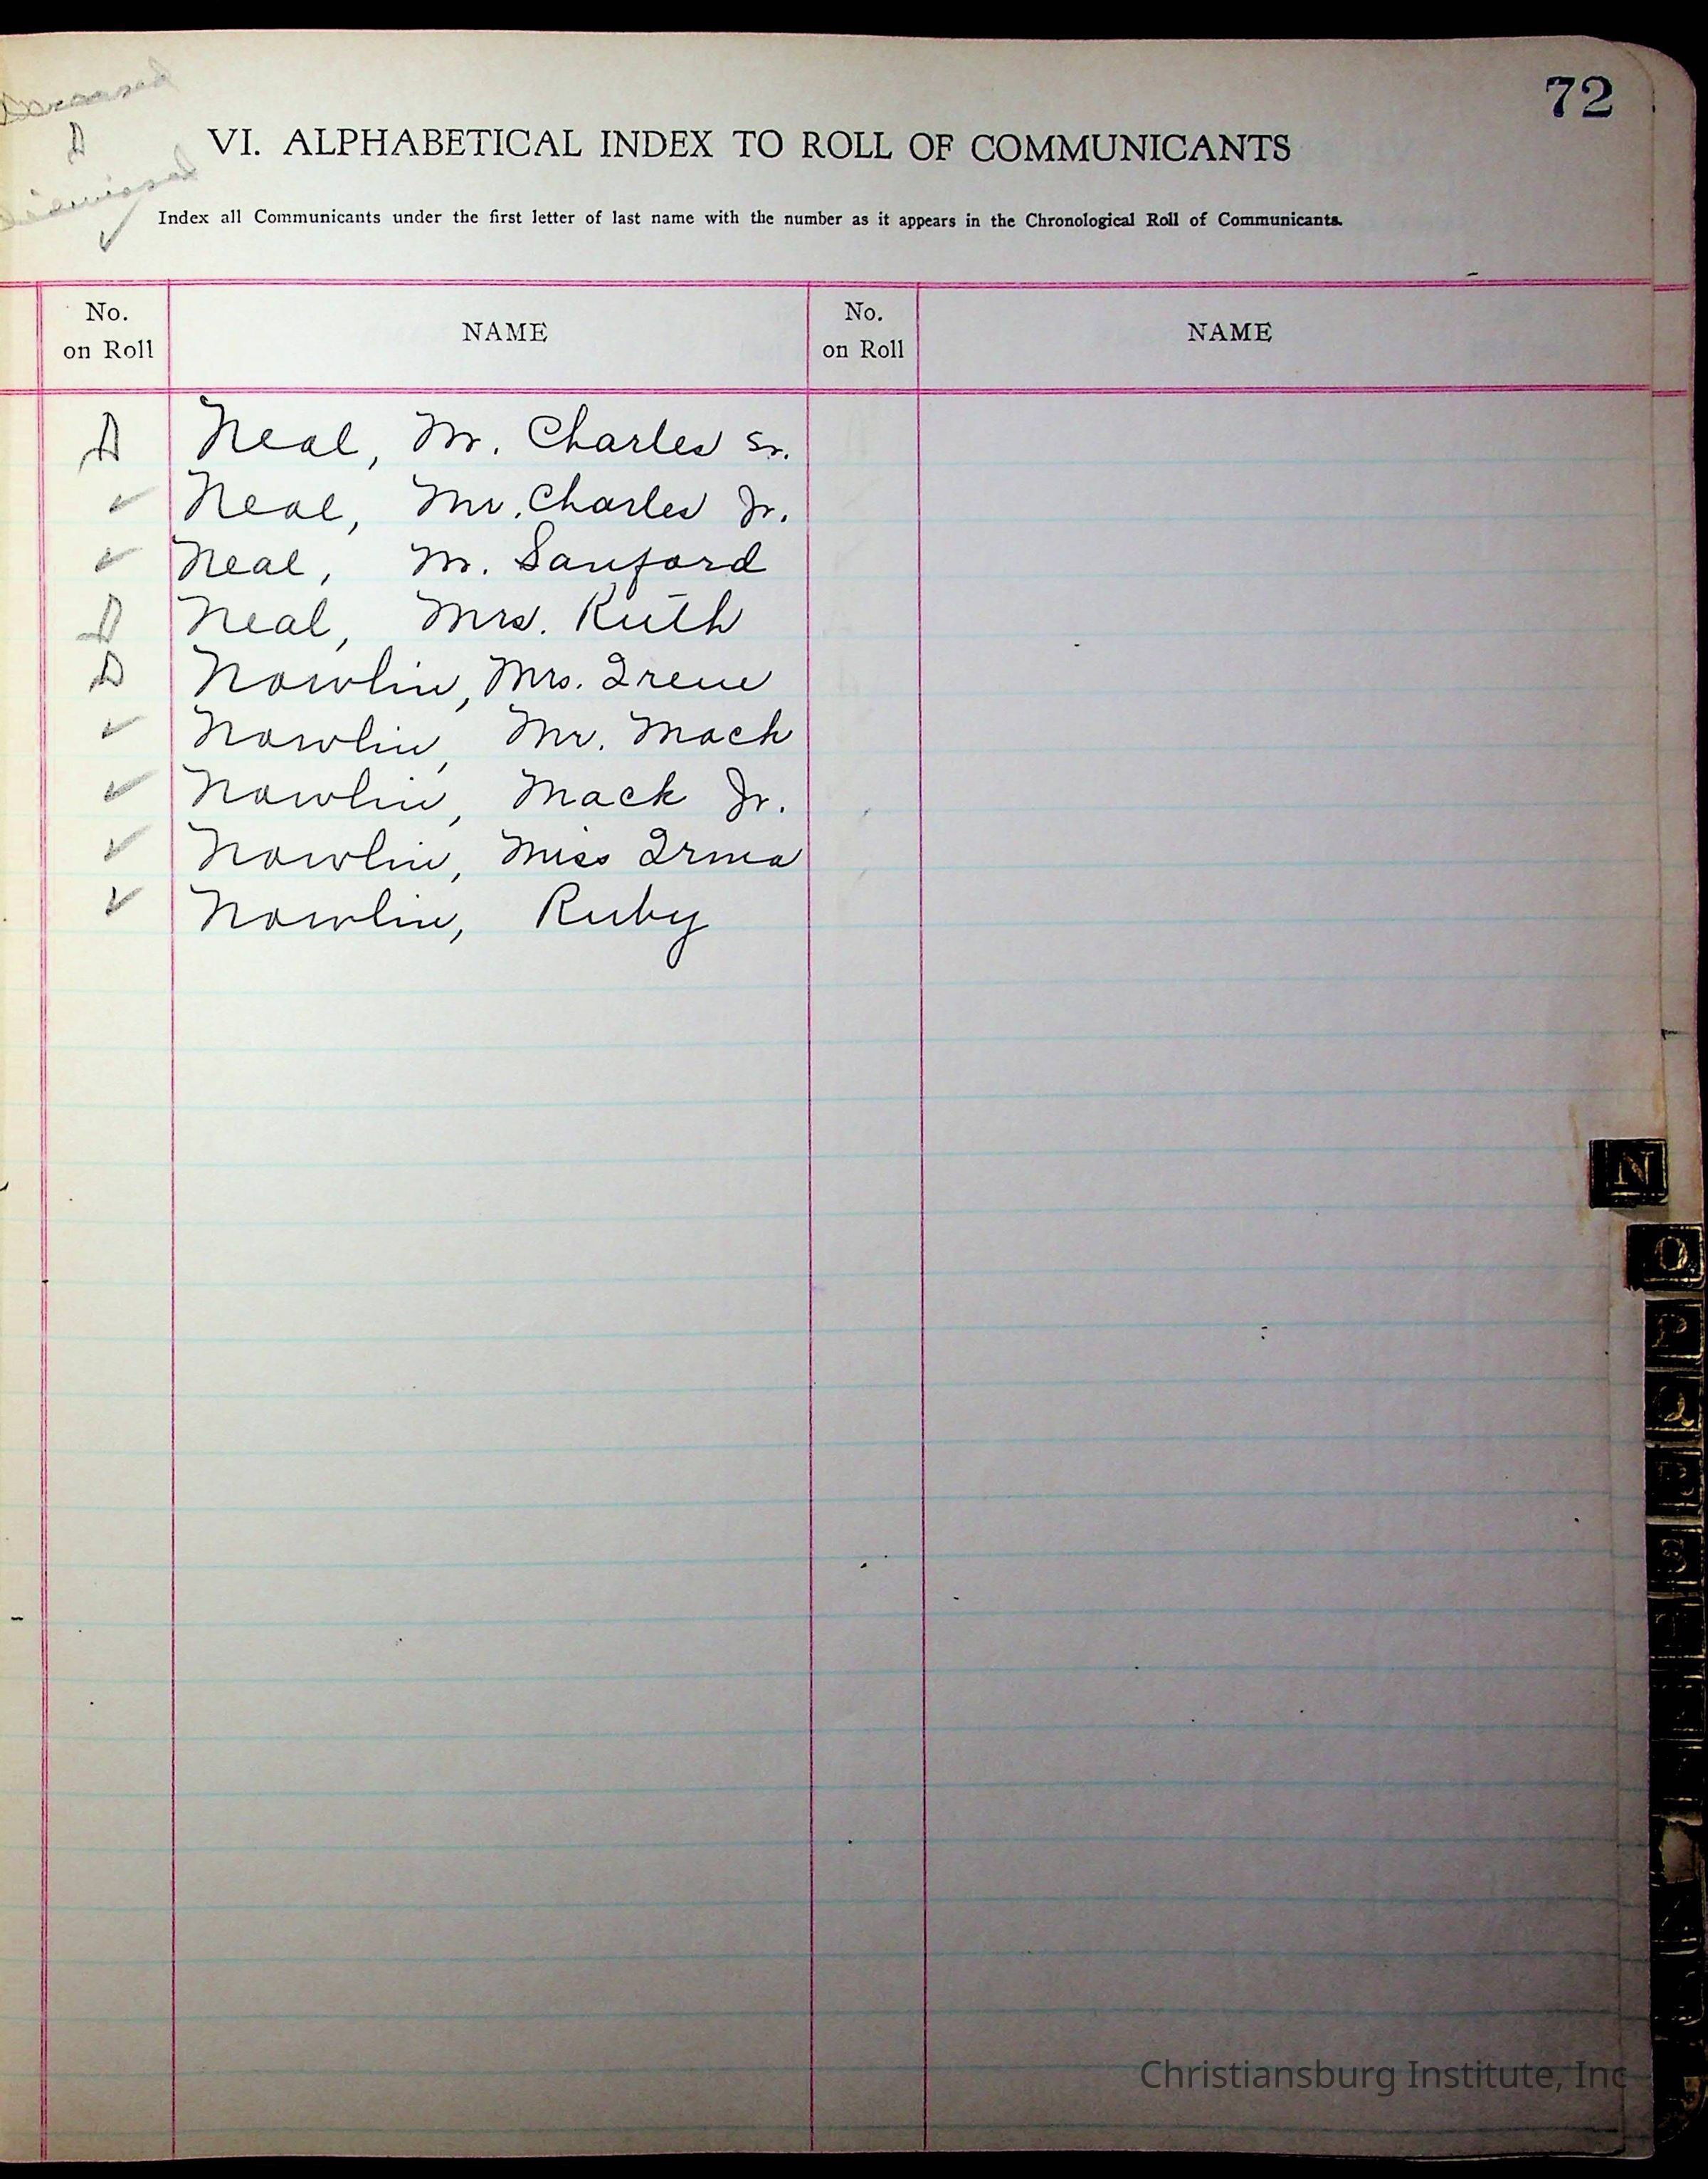 72
Deceased
D
VI. ALPHABETICAL INDEX TO ROLL OF COMMUNICANTS
Dismissed
✓
Index all Communicants under the first letter of last name with the number as it appears in the Chronological Roll of Communicants.
No. on Roll NAME No. on Roll NAME
D Neal, Mr. Charles Sr.
✓ Neal, Mr. Charles Jr.
✓ Neal, Mr. Sanford
D Neal, Mrs. Ruth
D Nowlin, Mrs. Irene
✓ Nowlin, Mr. Mack
✓ Nowlin, Mack Jr.
✓ Nowlin, Miss Irma
✓ Nowlin, Ruby
N
O
P
Q
R
S
T
Christiansburg Institute, Inc